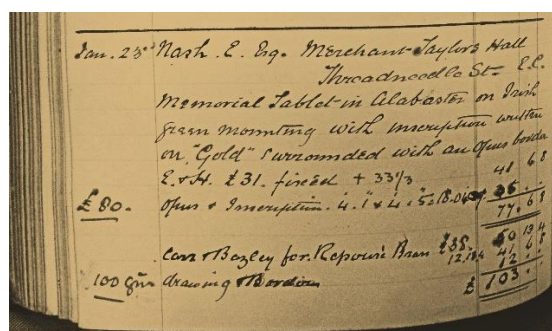 Jan. 23rd Nash. E. Esq. Merchant Taylors Hall
Threadneedle St. E.C.
Memorial Tablet in Alabaster on Irish
green mounting with inscription written
on "Gold" surrounded with an opus border
E. & H. £31. fixed + 33⅓ 41 6 8
£80. opus & Inscription. 77. 6 8
Carr & Bazley for Repoussé Brass £38 50 13 4
12.13.4 41 6 8
12
100 gns drawing & Borders £ 103